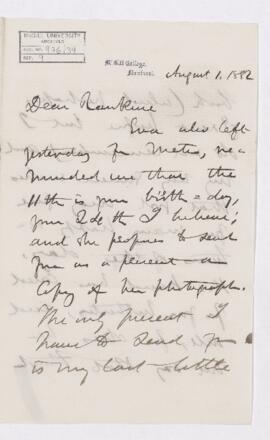 McGILL UNIVERSITY
ARCHIVES
ACC. NO. 976/39
REF. 9
McGill College,
Montreal.
August 1, 1882
Dear Rankine
Eva who left
yesterday for Metis, re-
minded me that the
11th is your birth-day,
your 20th I believe;
and she proposes to send
you as a present a
copy of her photograph.
The only present I
have to send you
is my last little